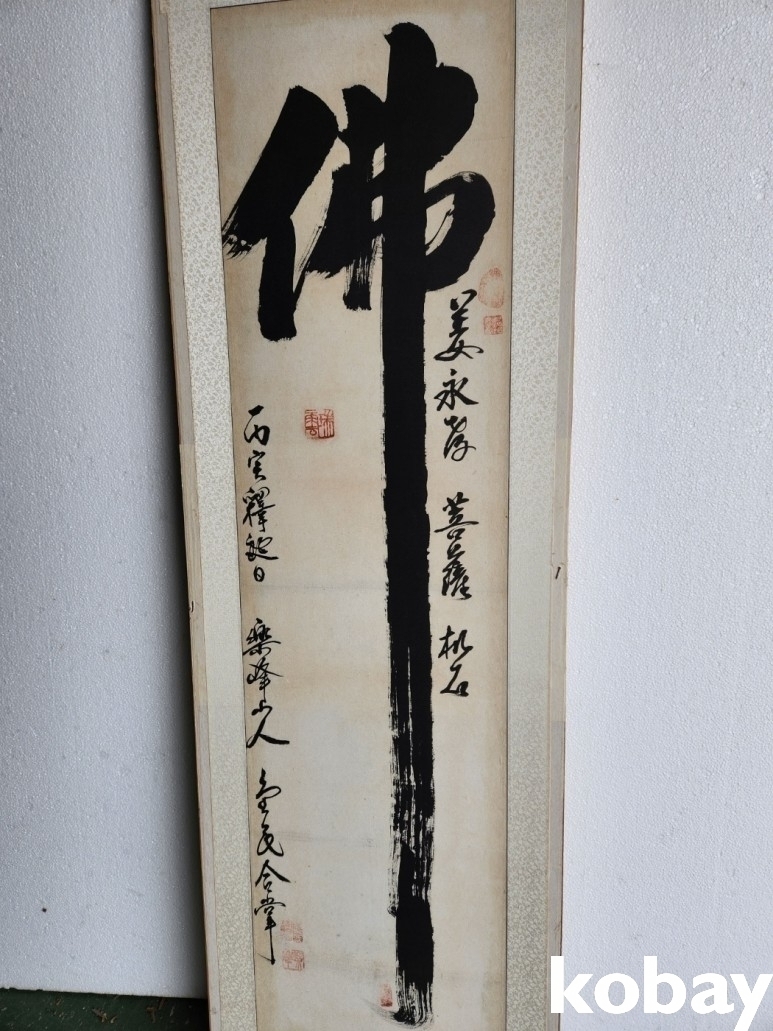 佛
姜永孝 菩薩 机右
丙寅釋誕日 樂峰山人 合掌
kobay